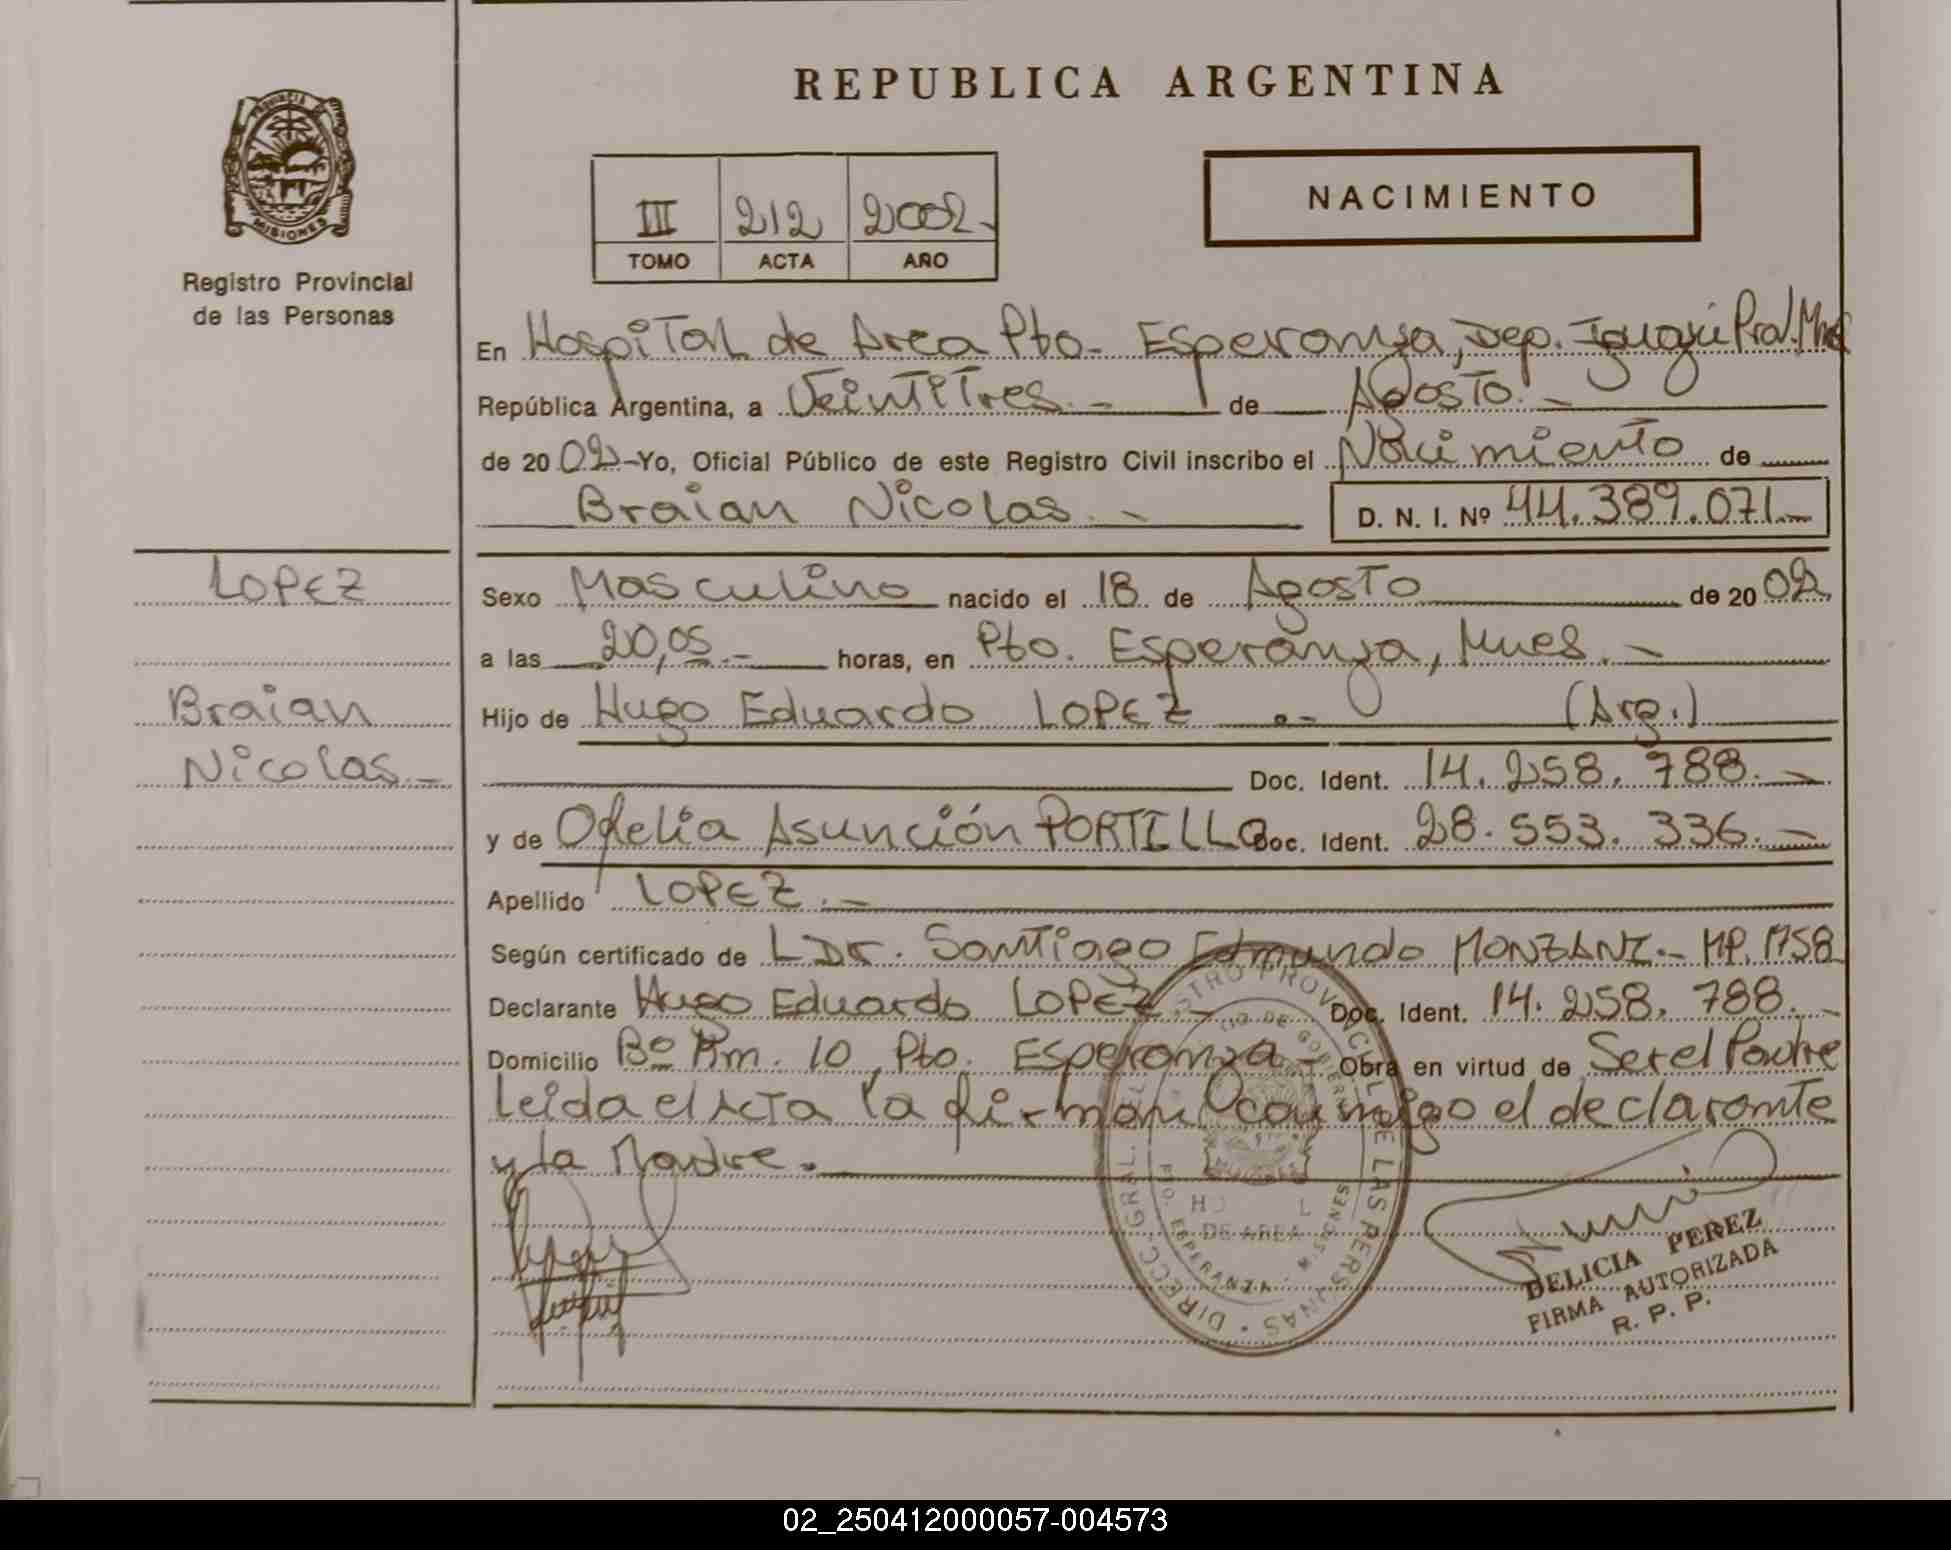 REPUBLICA ARGENTINA
PROVINCIA DE
MISIONES
Registro Provincial
de las Personas
III 212 2002.-
TOMO ACTA AÑO
NACIMIENTO
En Hospital de Area Pto. Esperanza, Dep. Iguazú Prov. Mnes
República Argentina, a Veintitres.- de Agosto.-
de 2002-Yo, Oficial Público de este Registro Civil inscribo el Nacimiento de
Braian Nicolas.- D. N. I. Nº 44.389.071.-
LOPEZ
Braian
Nicolas.-
Sexo Masculino nacido el 18 de Agosto de 2002
a las 20,05.- horas, en Pto. Esperanza, Mnes.-
Hijo de Hugo Eduardo LOPEZ .- (Arg.)
Doc. Ident. 14.258.788.-
y de Ofelia Asunción PORTILLO Doc. Ident. 28.553.336.-
Apellido LOPEZ.-
Según certificado de Dr. Santiago Edmundo MONZANI.- MP. 1758
Declarante Hugo Eduardo LOPEZ.- Doc. Ident. 14.258.788.-
Domicilio Bº Km. 10, Pto. Esperanza - Obra en virtud de Ser el Padre
Leida el Acta la firman conmigo el declarante
y la Madre.
DIRECC. GRAL. DEL REGISTRO PROVINCIAL DE LAS PERSONAS
DE AREA
PTO. ESPERANZA - MISIONES
DELICIA PEREZ
FIRMA AUTORIZADA
R. P. P.
02_250412000057-004573